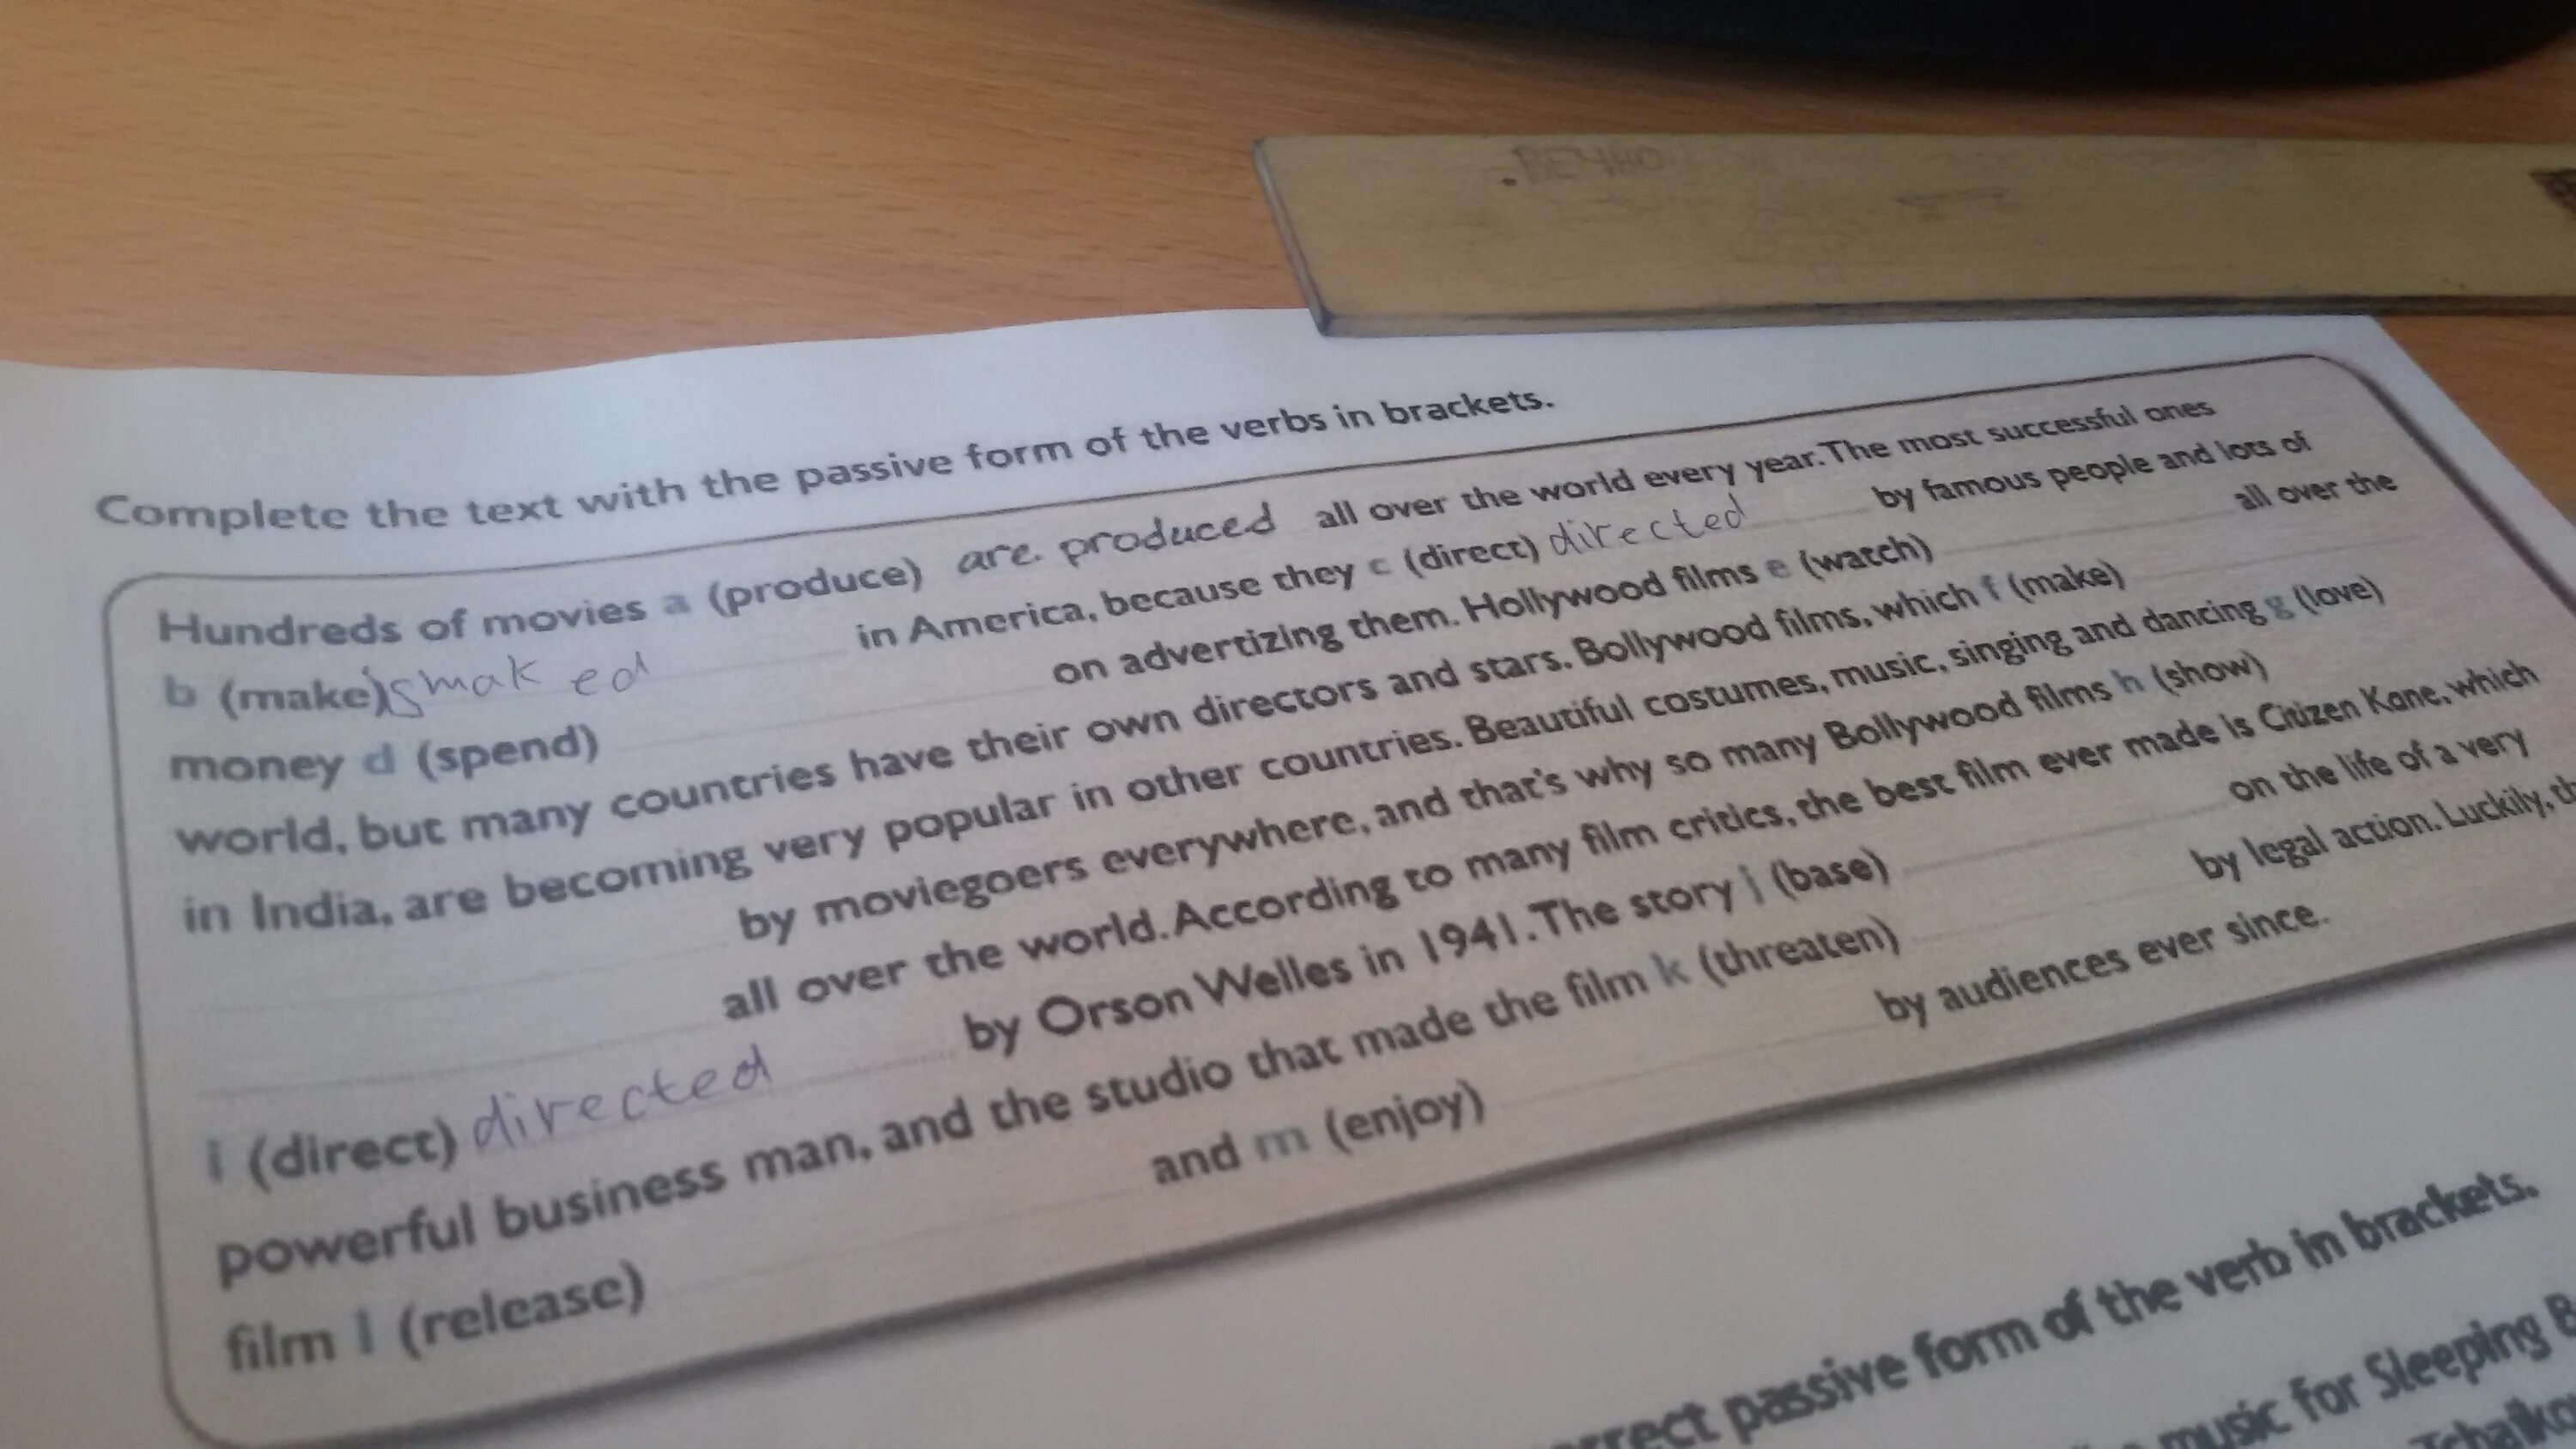 .BEYHO
Complete the text with the passive form of the verbs in brackets.
Hundreds of movies a (produce) are produced all over the world every year. The most successful ones
b (make) smaked in America, because they c (direct) directed by famous people and lots of
money d (spend) on advertizing them. Hollywood films e (watch) all over the
world, but many countries have their own directors and stars. Bollywood films, which f (make)
in India, are becoming very popular in other countries. Beautiful costumes, music, singing and dancing g (love)
by moviegoers everywhere, and that's why so many Bollywood films h (show)
all over the world. According to many film critics, the best film ever made is Citizen Kane, which
i (direct) directed by Orson Welles in 1941. The story j (base) on the life of a very
powerful business man, and the studio that made the film k (threaten) by legal action. Luckily, th
film l (release) and m (enjoy) by audiences ever since.
rrect passive form of the verb in brackets.
music for Sleeping B
Tchaiko